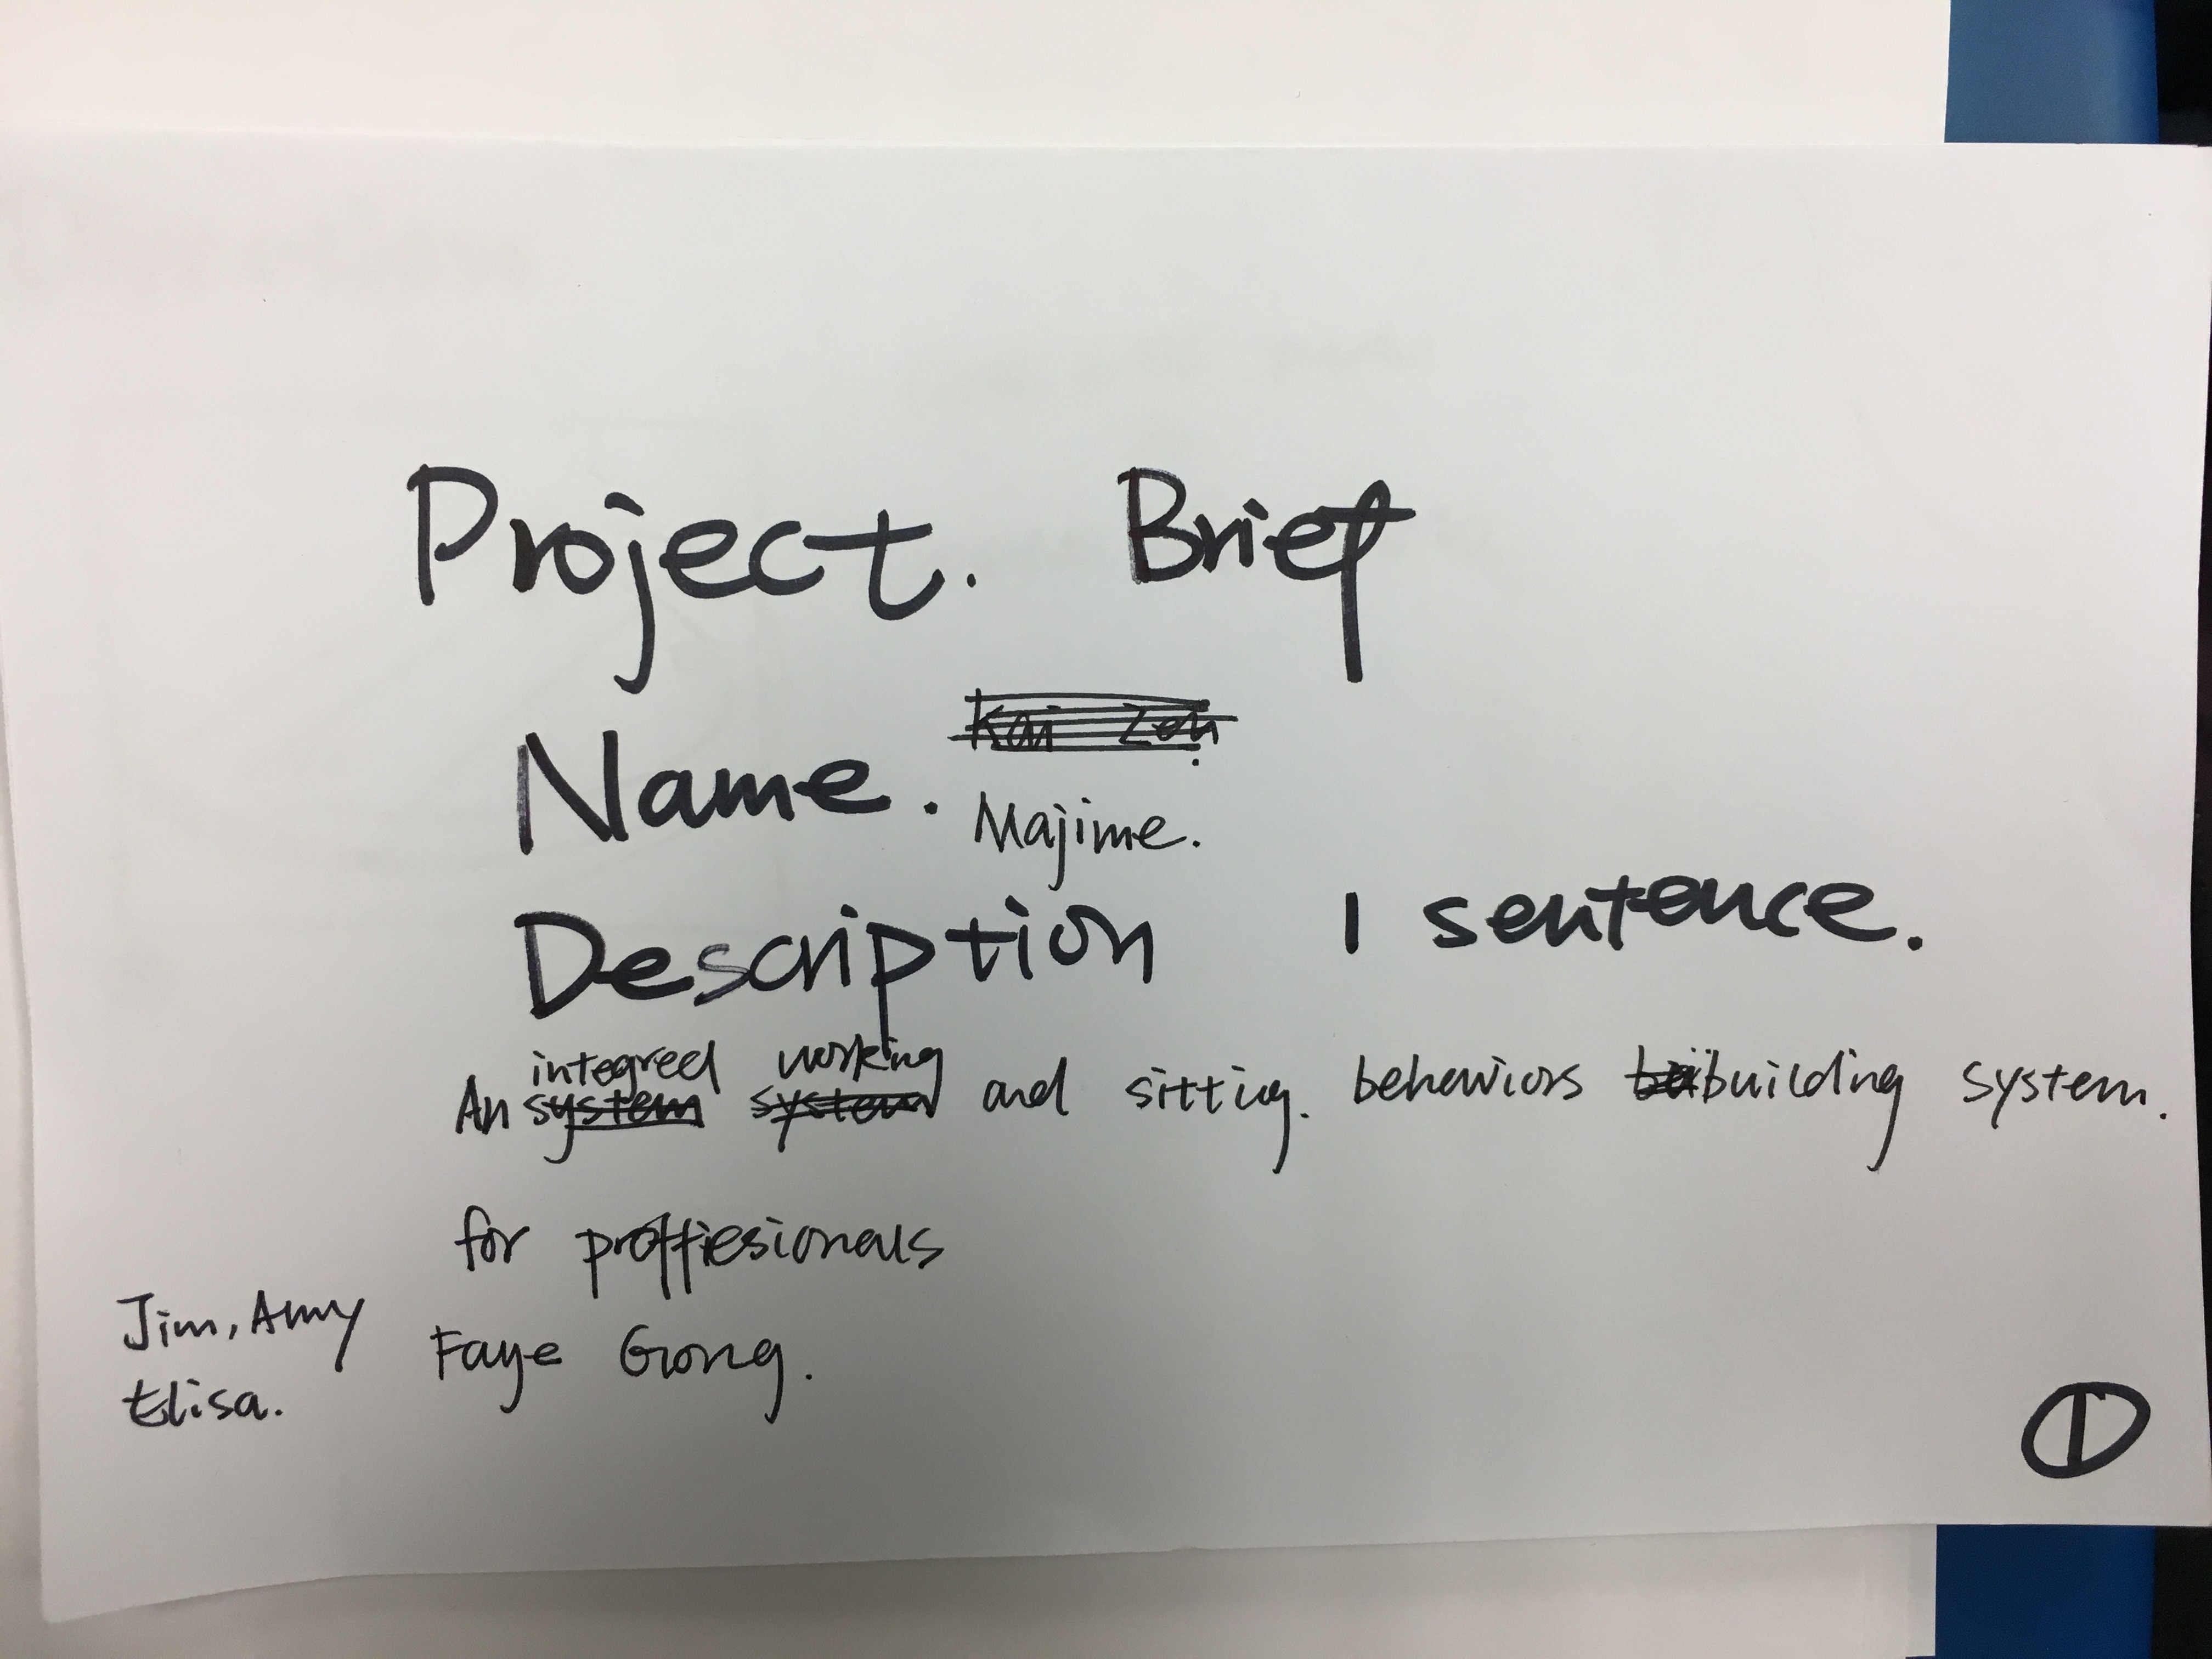 Project. Brief
Name. Majime.
Description 1 sentence.
integreel working
An system system and sitting. behaviors building system.
for proffesionals
Jim, Amy Faye Gong.
Elisa.
1